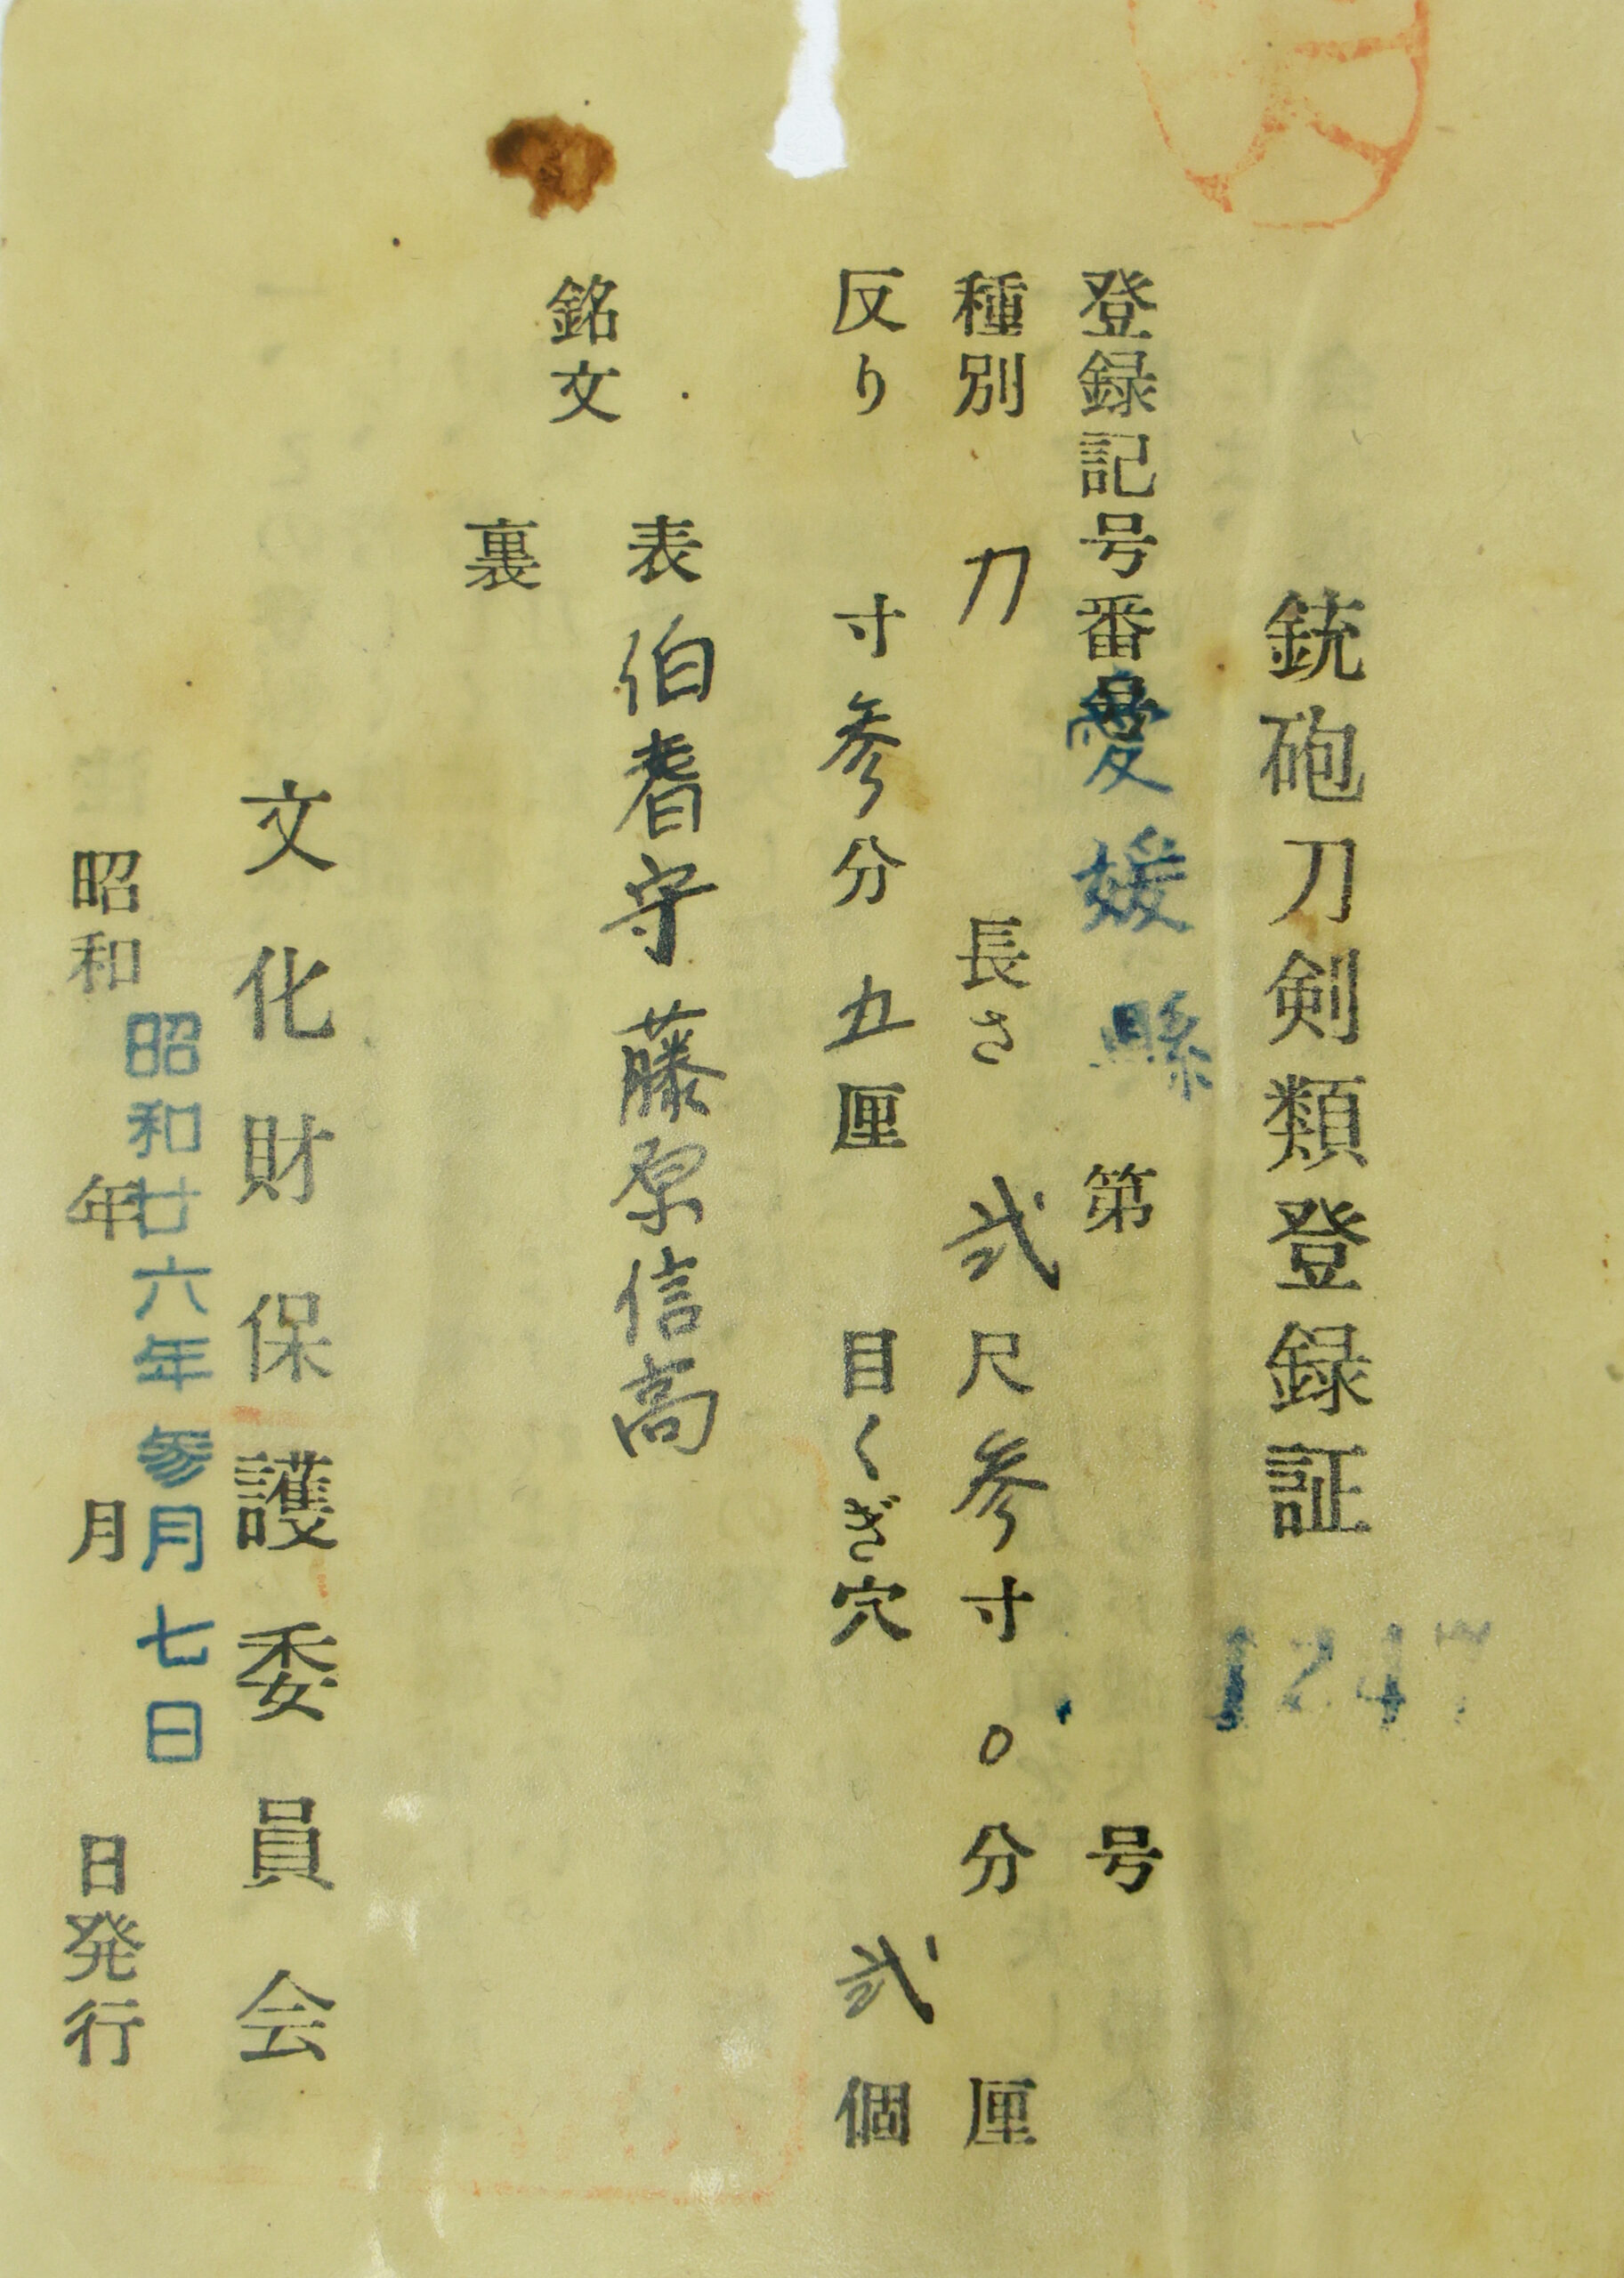 銃砲刀剣類登録証
登録記号番号 愛媛縣 第 1247 号
種別 刀 長さ 弐尺参寸〇分 厘
反り 寸参分五厘 目くぎ穴 弐個
銘文
表 伯耆守藤原信高
裏
文化財保護委員会
昭和廿六年参月七日
昭和 年 月 日発行